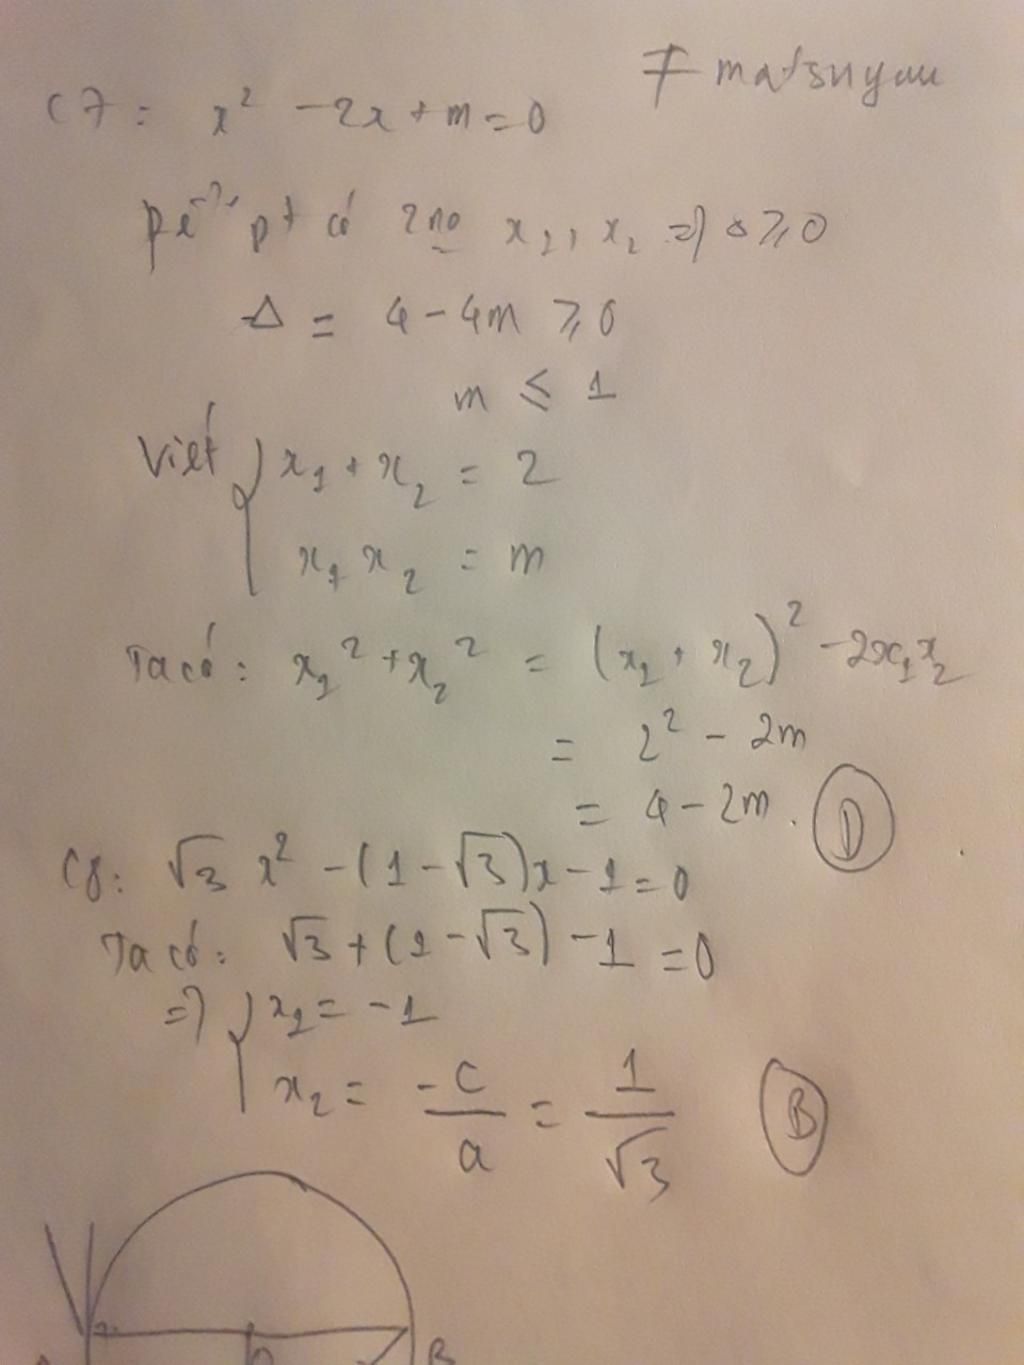 7 matsuyam
C7: x² - 2x + m = 0
pt có 2 no x₁, x₂ => Δ ≥ 0
Δ = 4 - 4m ≥ 0
m ≤ 1
Viét { x₁ + x₂ = 2
x₁ x₂ = m
Ta có: x₁² + x₂² = (x₁ + x₂)² - 2x₁x₂
= 2² - 2m
= 4 - 2m. D
C8: √3 x² - (1 - √3)x - 1 = 0
Ta có: √3 + (1 - √3) - 1 = 0
=> { x₁ = -1
x₂ = -c/a = 1/√3 B
B